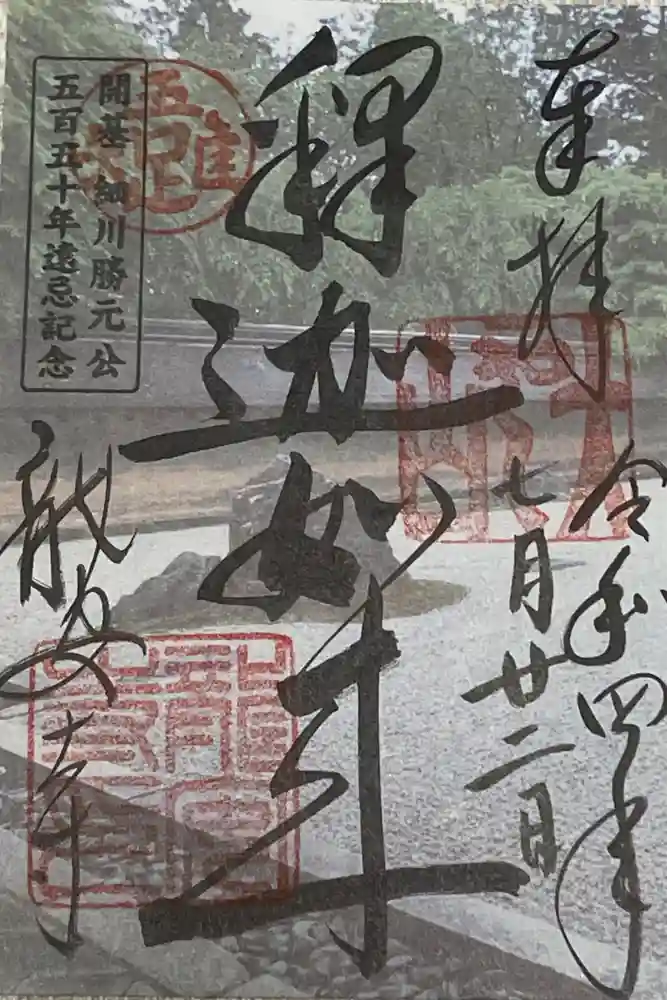 奉拝
令和四年
七月廿二日
釋迦如来
開基 細川勝元公
五百五十年遠忌記念
龍安寺
吾唯足知